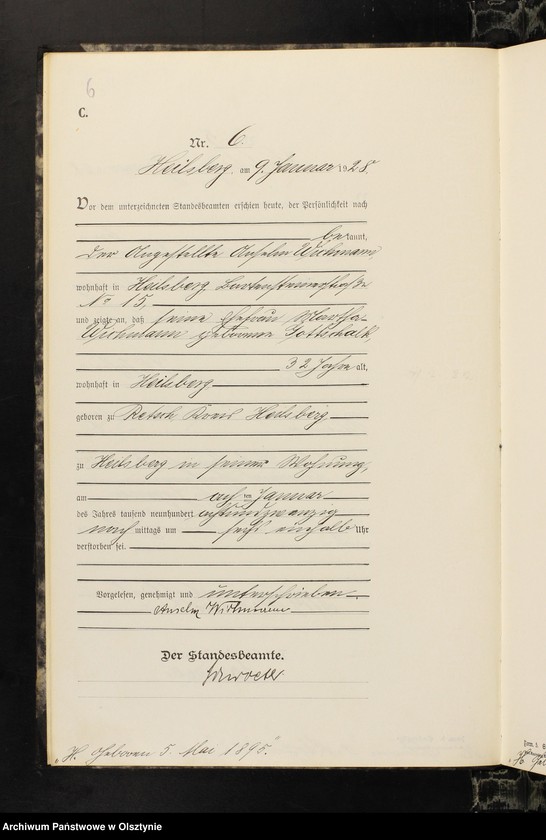 6
C.
Nr. 6.
Heilsberg, am 9. Januar 1928.
Vor dem unterzeichneten Standesbeamten erschien heute, der Persönlichkeit nach
bekannt,
der Angestellte Anselm Wichmann
wohnhaft in Heilsberg Bartensteinerstraße
No 15,
und zeigte an, daß seine Ehefrau Martha
Wichmann geborene Gottschalk,
32 Jahre alt,
wohnhaft in Heilsberg
geboren zu Retsch Kreis Heilsberg
zu Heilsberg in seiner Wohnung,
am acht ten Januar
des Jahres tausend neunhundert achtundzwanzig
nach mittags um sechs einhalb Uhr
verstorben sei.
Vorgelesen, genehmigt und unterschrieben.
Anselm Wichmann
Der Standesbeamte.
H. geboren 5. Mai 1895.
Archiwum Państwowe w Olsztynie